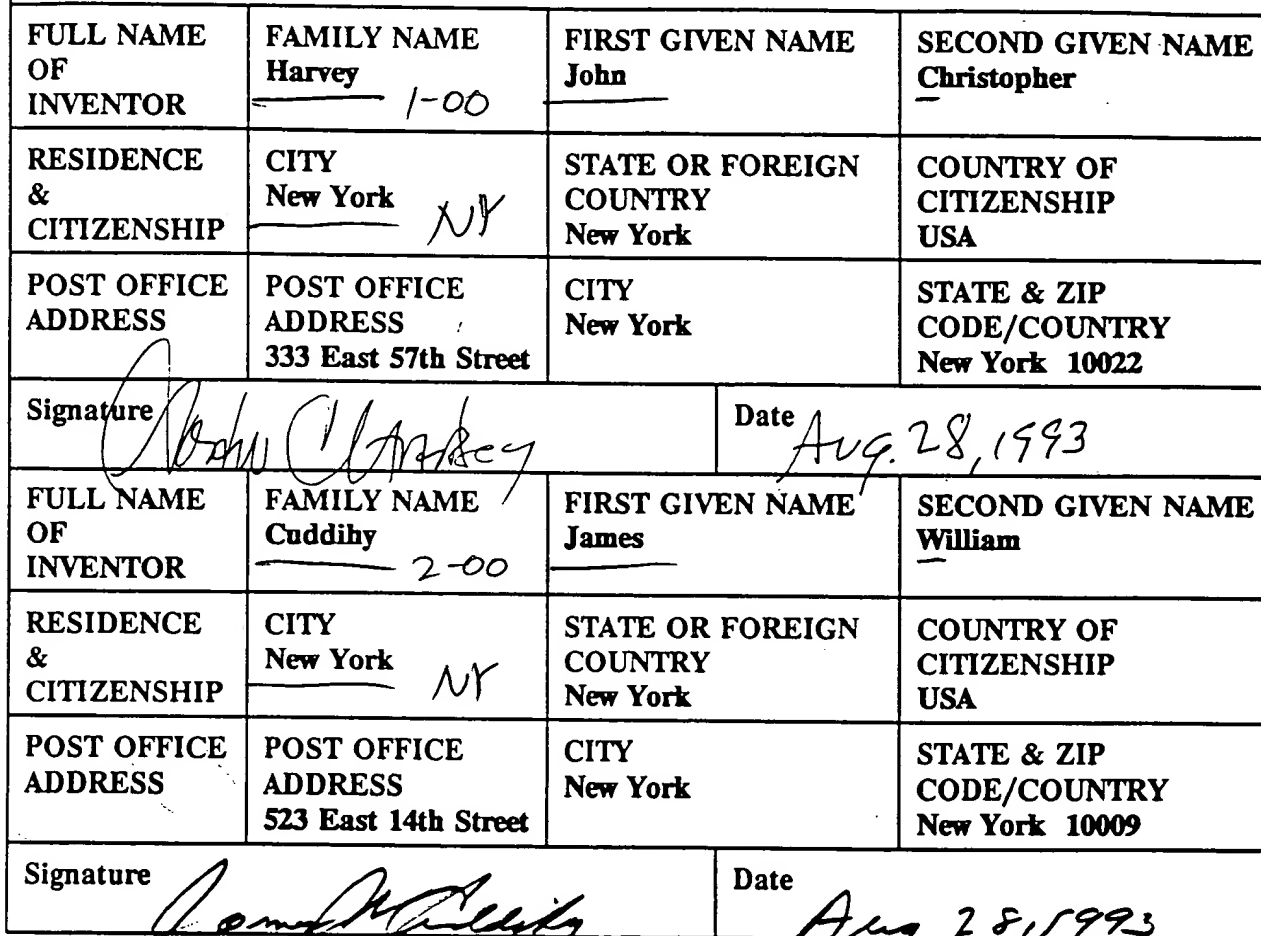 FULL NAME OF INVENTOR
FAMILY NAME
Harvey
1-00
FIRST GIVEN NAME
John
SECOND GIVEN NAME
Christopher
RESIDENCE & CITIZENSHIP
CITY
New York
NY
STATE OR FOREIGN COUNTRY
New York
COUNTRY OF CITIZENSHIP
USA
POST OFFICE ADDRESS
POST OFFICE ADDRESS
333 East 57th Street
CITY
New York
STATE & ZIP CODE/COUNTRY
New York 10022
Signature
John C Harvey
Date
Aug. 28, 1993
FULL NAME OF INVENTOR
FAMILY NAME
Cuddihy
2-00
FIRST GIVEN NAME
James
SECOND GIVEN NAME
William
RESIDENCE & CITIZENSHIP
CITY
New York
NY
STATE OR FOREIGN COUNTRY
New York
COUNTRY OF CITIZENSHIP
USA
POST OFFICE ADDRESS
POST OFFICE ADDRESS
523 East 14th Street
CITY
New York
STATE & ZIP CODE/COUNTRY
New York 10009
Signature
James W Cuddihy
Date
Aug 28, 1993